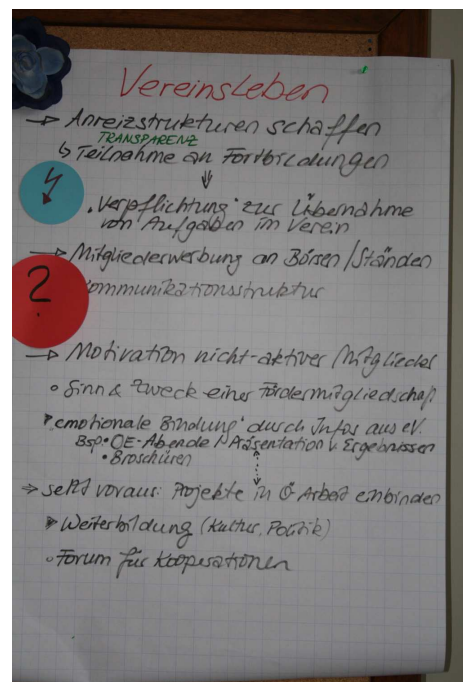 Vereinsleben
→ Anreizstrukturen schaffen
TRANSPARENZ
↳ Teilnahme an Fortbildungen
⇓
"Verpflichtung" zur Übernahme
von Aufgaben im Verein
→ Mitgliederwerbung an Börsen/Ständen
?
ommunikationsstruktur
→ Motivation nicht-aktiver Mitglieder
• Sinn & Zweck einer Fördermitgliedschaft
"emotionale Bindung" durch Infos aus eV.
Bsp. • OE-Abende / Präsentation v. Ergebnissen
• Broschüren
⇒ setzt voraus: Projekte in Ö Arbeit einbinden
▸ Weiterbildung (Kultur, Politik)
• Forum für Kooperationen